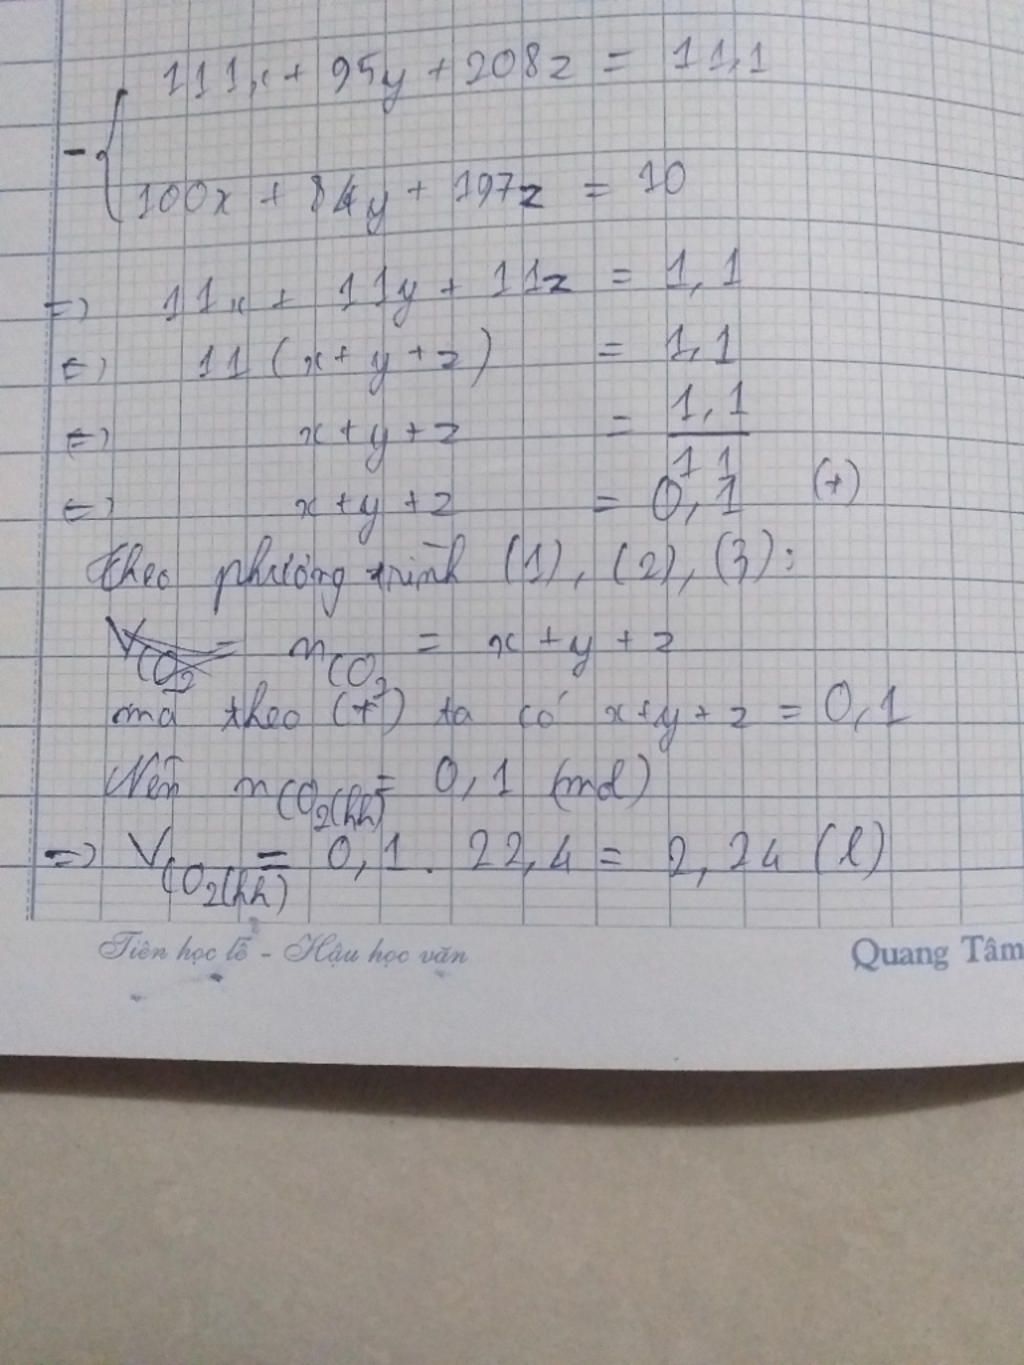 111x + 95y + 208z = 11,1
- {
100x + 84y + 197z = 10
=> 11x + 11y + 11z = 1,1
<=> 11(x+y+z) = 1,1
<=> x+y+z = 1,1/11
<=> x+y+z = 0,1 (+)
theo phương trình (1), (2), (3):
V_CO2 = n_CO2 = x+y+z
mà theo (+) ta có x+y+z = 0,1
Nên n_CO2(hh) = 0,1 (mol)
=> V_CO2(hh) = 0,1 . 22,4 = 2,24 (l)
Tiên học lễ - Hậu học văn
Quang Tâm